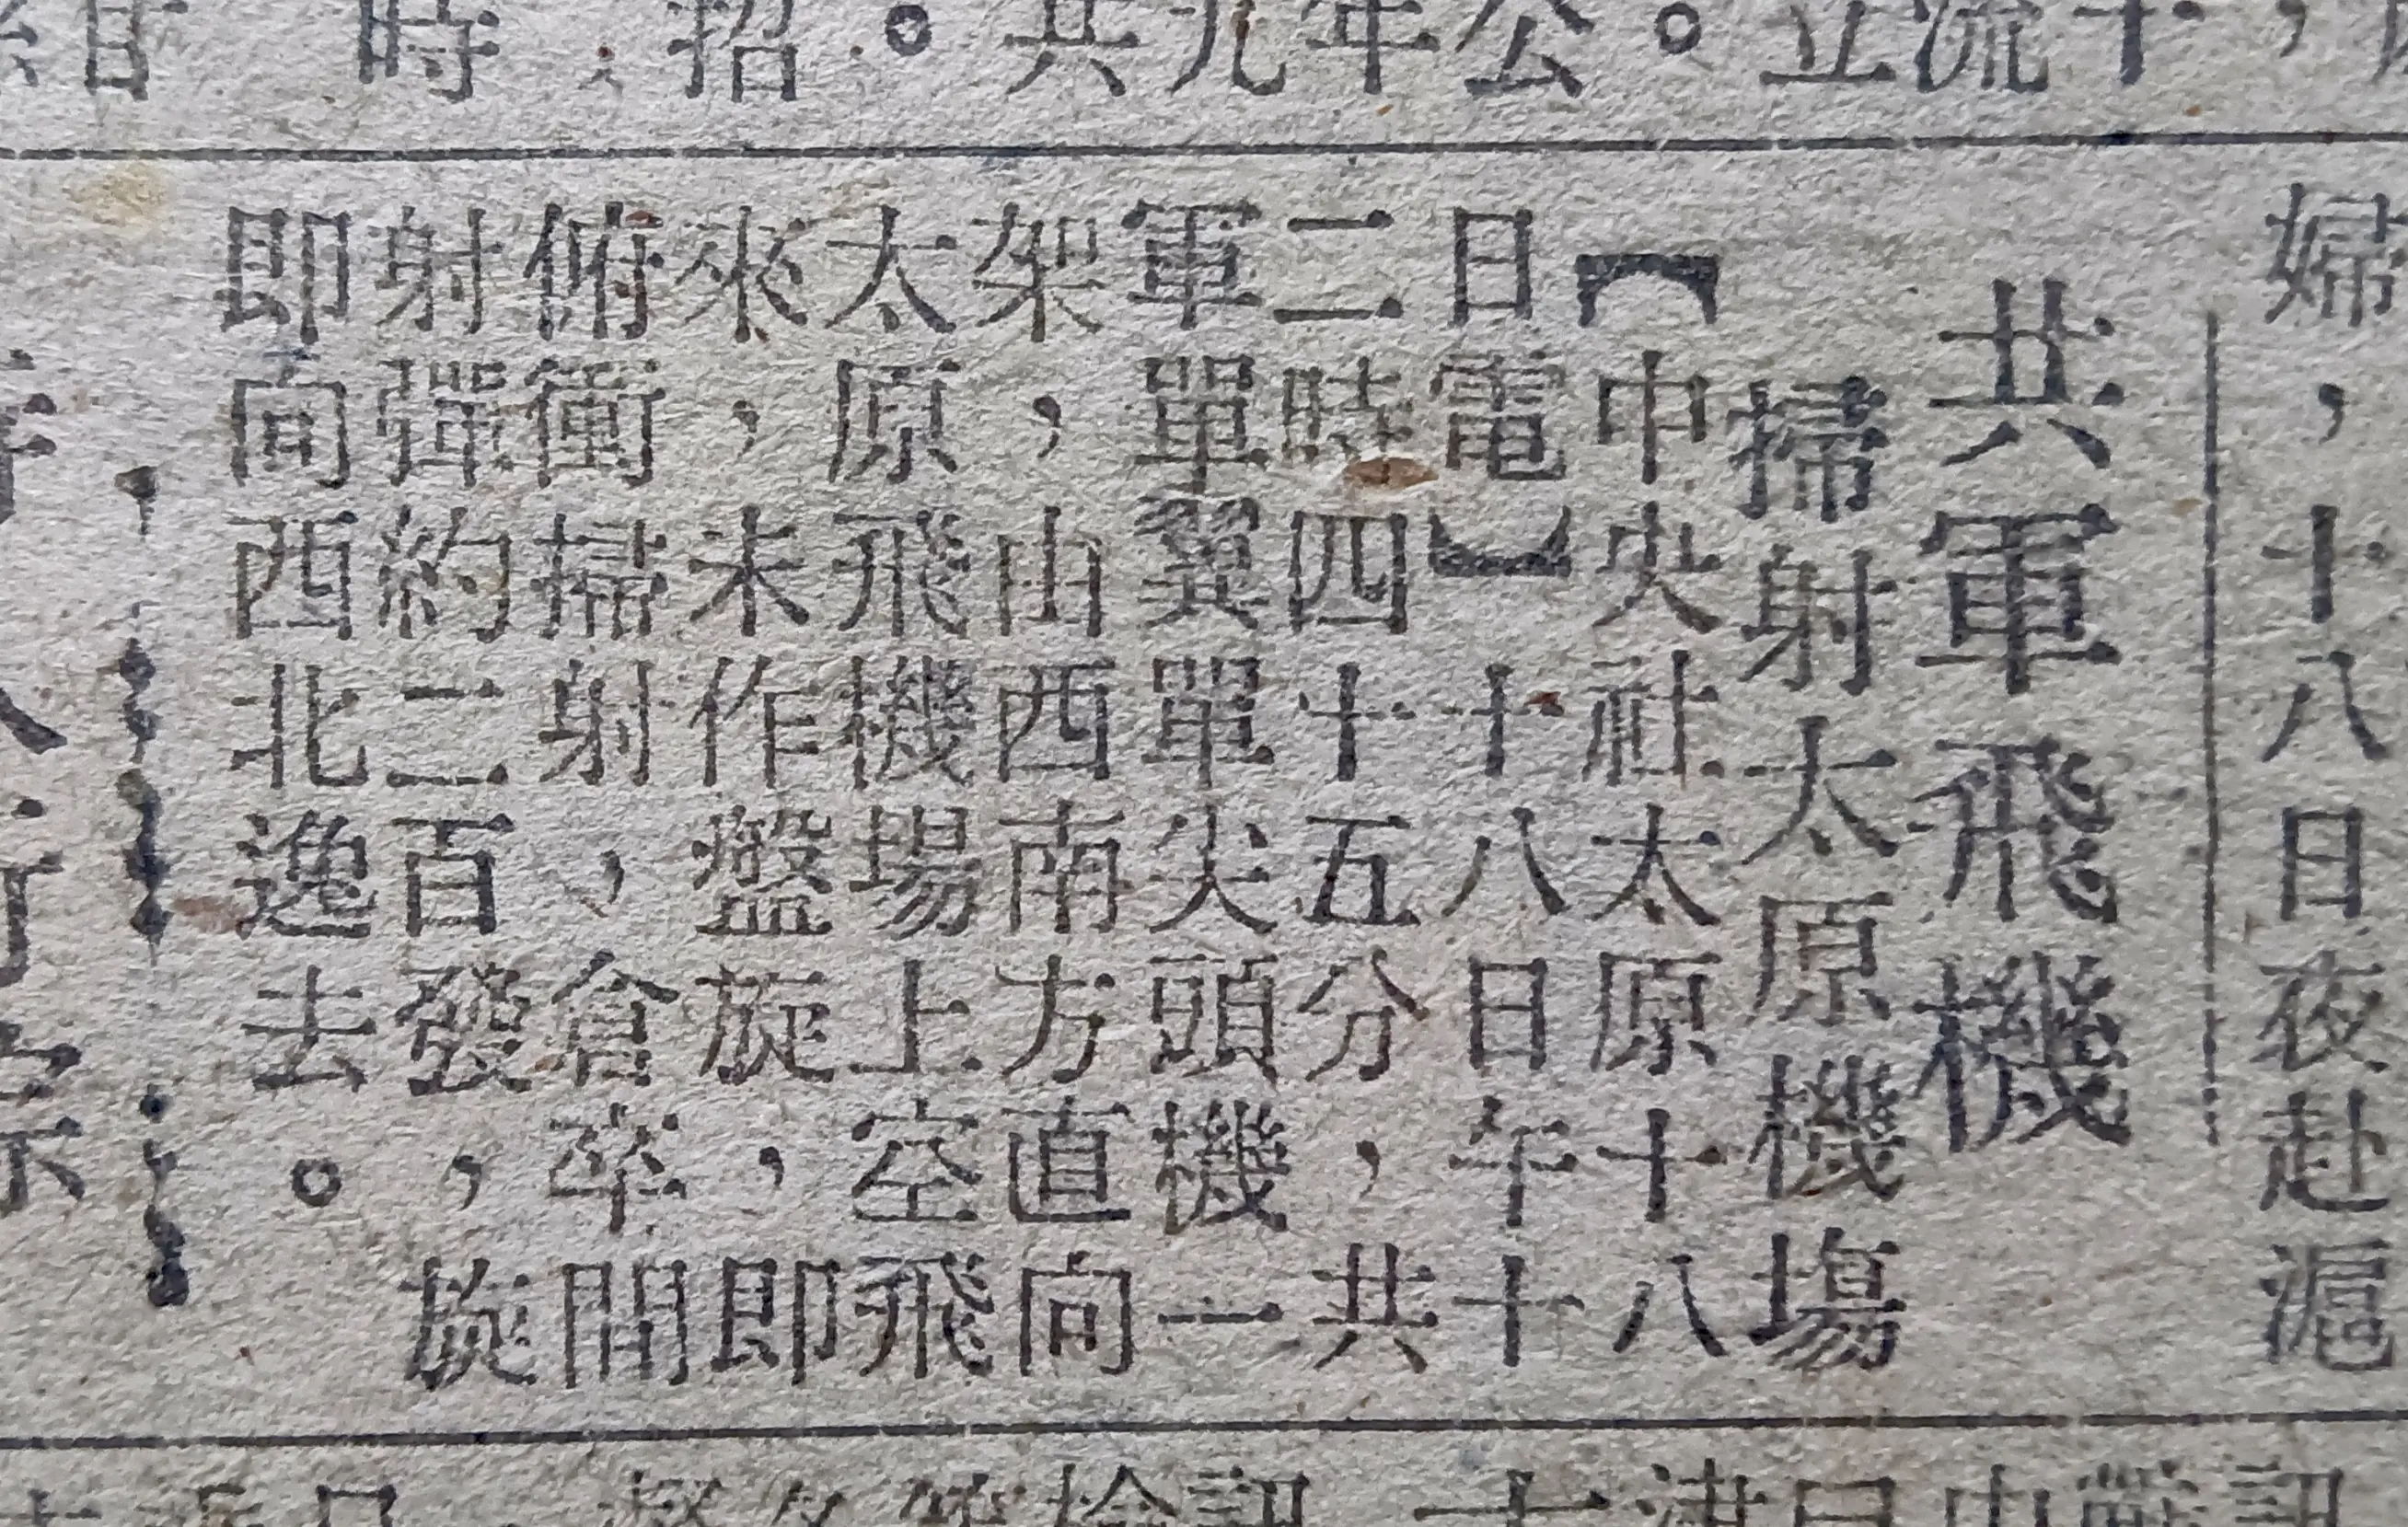 婦，十八日夜赴滬
共軍飛機
掃射太原機場
【中央社太原十八
日電】十八日午十
二時四十五分，共
軍單翼單尖頭機一
架，由西南方直向
太原飛機場上空飛
來，未作盤旋，即
俯衝掃射，倉卒間
射彈約二百發，旋
即向西北逸去。